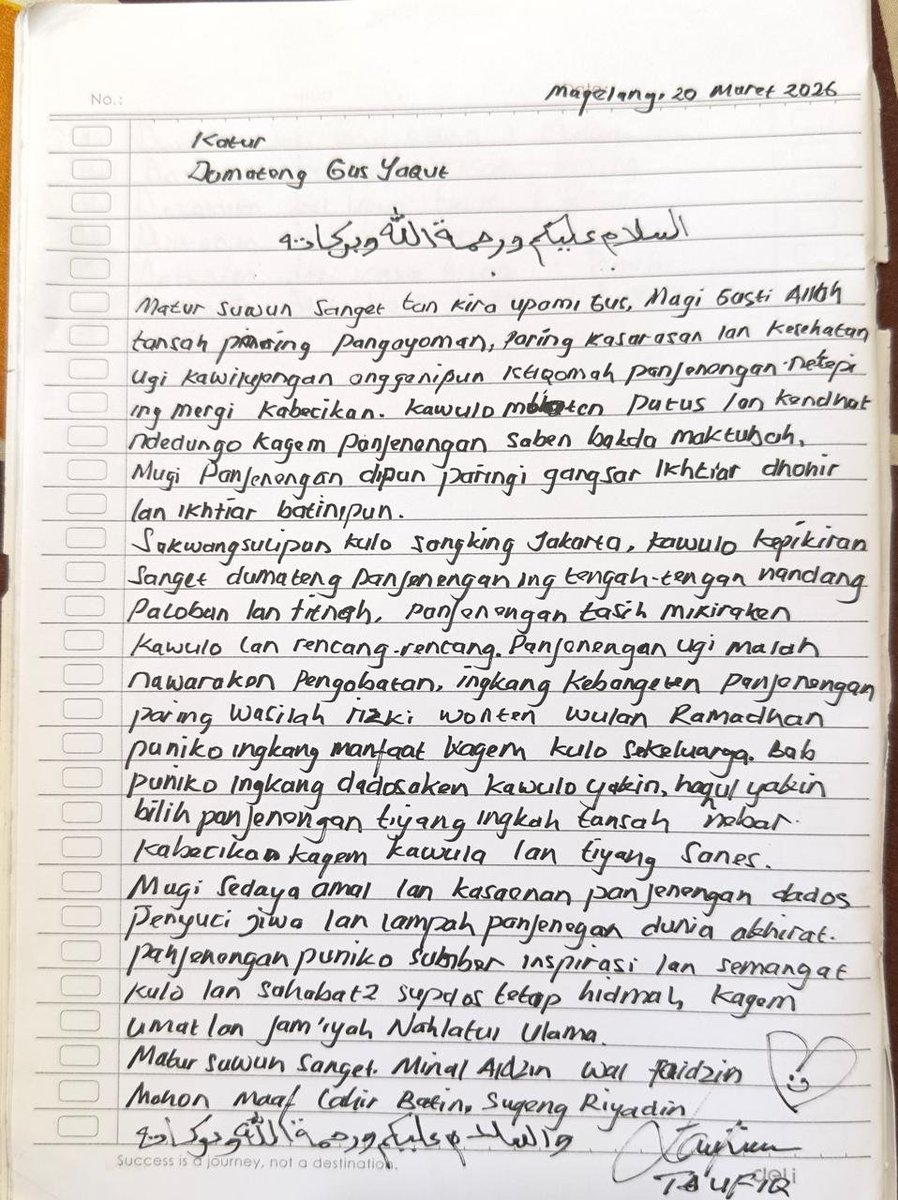 No.:
Magelang, 20 Maret 2026
Katur
Dumateng Gus Yaqut
السلام عليكم ورحمة الله وبركاته
Matur suwun sanget tan kira upami Gus, Mugi Gusti Allah
tansah paring pangayoman, paring kasarasan lan kesehatan
ugi kawilujongan anggenipun istiqomah panjenengan netepi
ing mergi kabecikan. Kawulo mboten putus lan kendhat
ndedungo kagem panjenengan saben bakda maktubah.
Mugi Panjenengan dipun paringi gangsar ikhtiar dhohir
lan ikhtiar batinipun.
Sakwangsulipun kulo songking Jakarta, kawulo kepikiran
sanget dumateng panjenengan ing tengah-tengan nandang
Pacoban lan fitnah, panjenengan tasih mikiraken
kawulo lan rencang-rencang. Panjenengan ugi malah
nawaraken Pengobatan, ingkang kebangeten panjenengan
paring wasilah rizki wonten wulan Ramadhan
puniko ingkang manfaat kagem kulo sakeluarga. Bab
puniko ingkang dadosaken kawulo yakin, haqul yakin
bilih panjenengan tiyang ingkah tansah nebar
kabecikan kagem kawula lan tiyang sanes.
Mugi sedaya amal lan kasaenan panjenengan dados
Penyuci jiwa lan lampah panjenegan dunia akhirat.
panjenengan puniko sumber inspirasi lan semangat
kulo lan sahabat2 supdos tetap hidmah kagem
umat lan jam'iyah Nahlatul Ulama.
Matur suwun sanget. Minal Aidzin wal faidzin
Mohon Maaf Lahir Batin, Sugeng Riyadin
والسلام عليكم ورحمة الله وبركاته
TAUFIQ
Success is a journey, not a destination.
deli